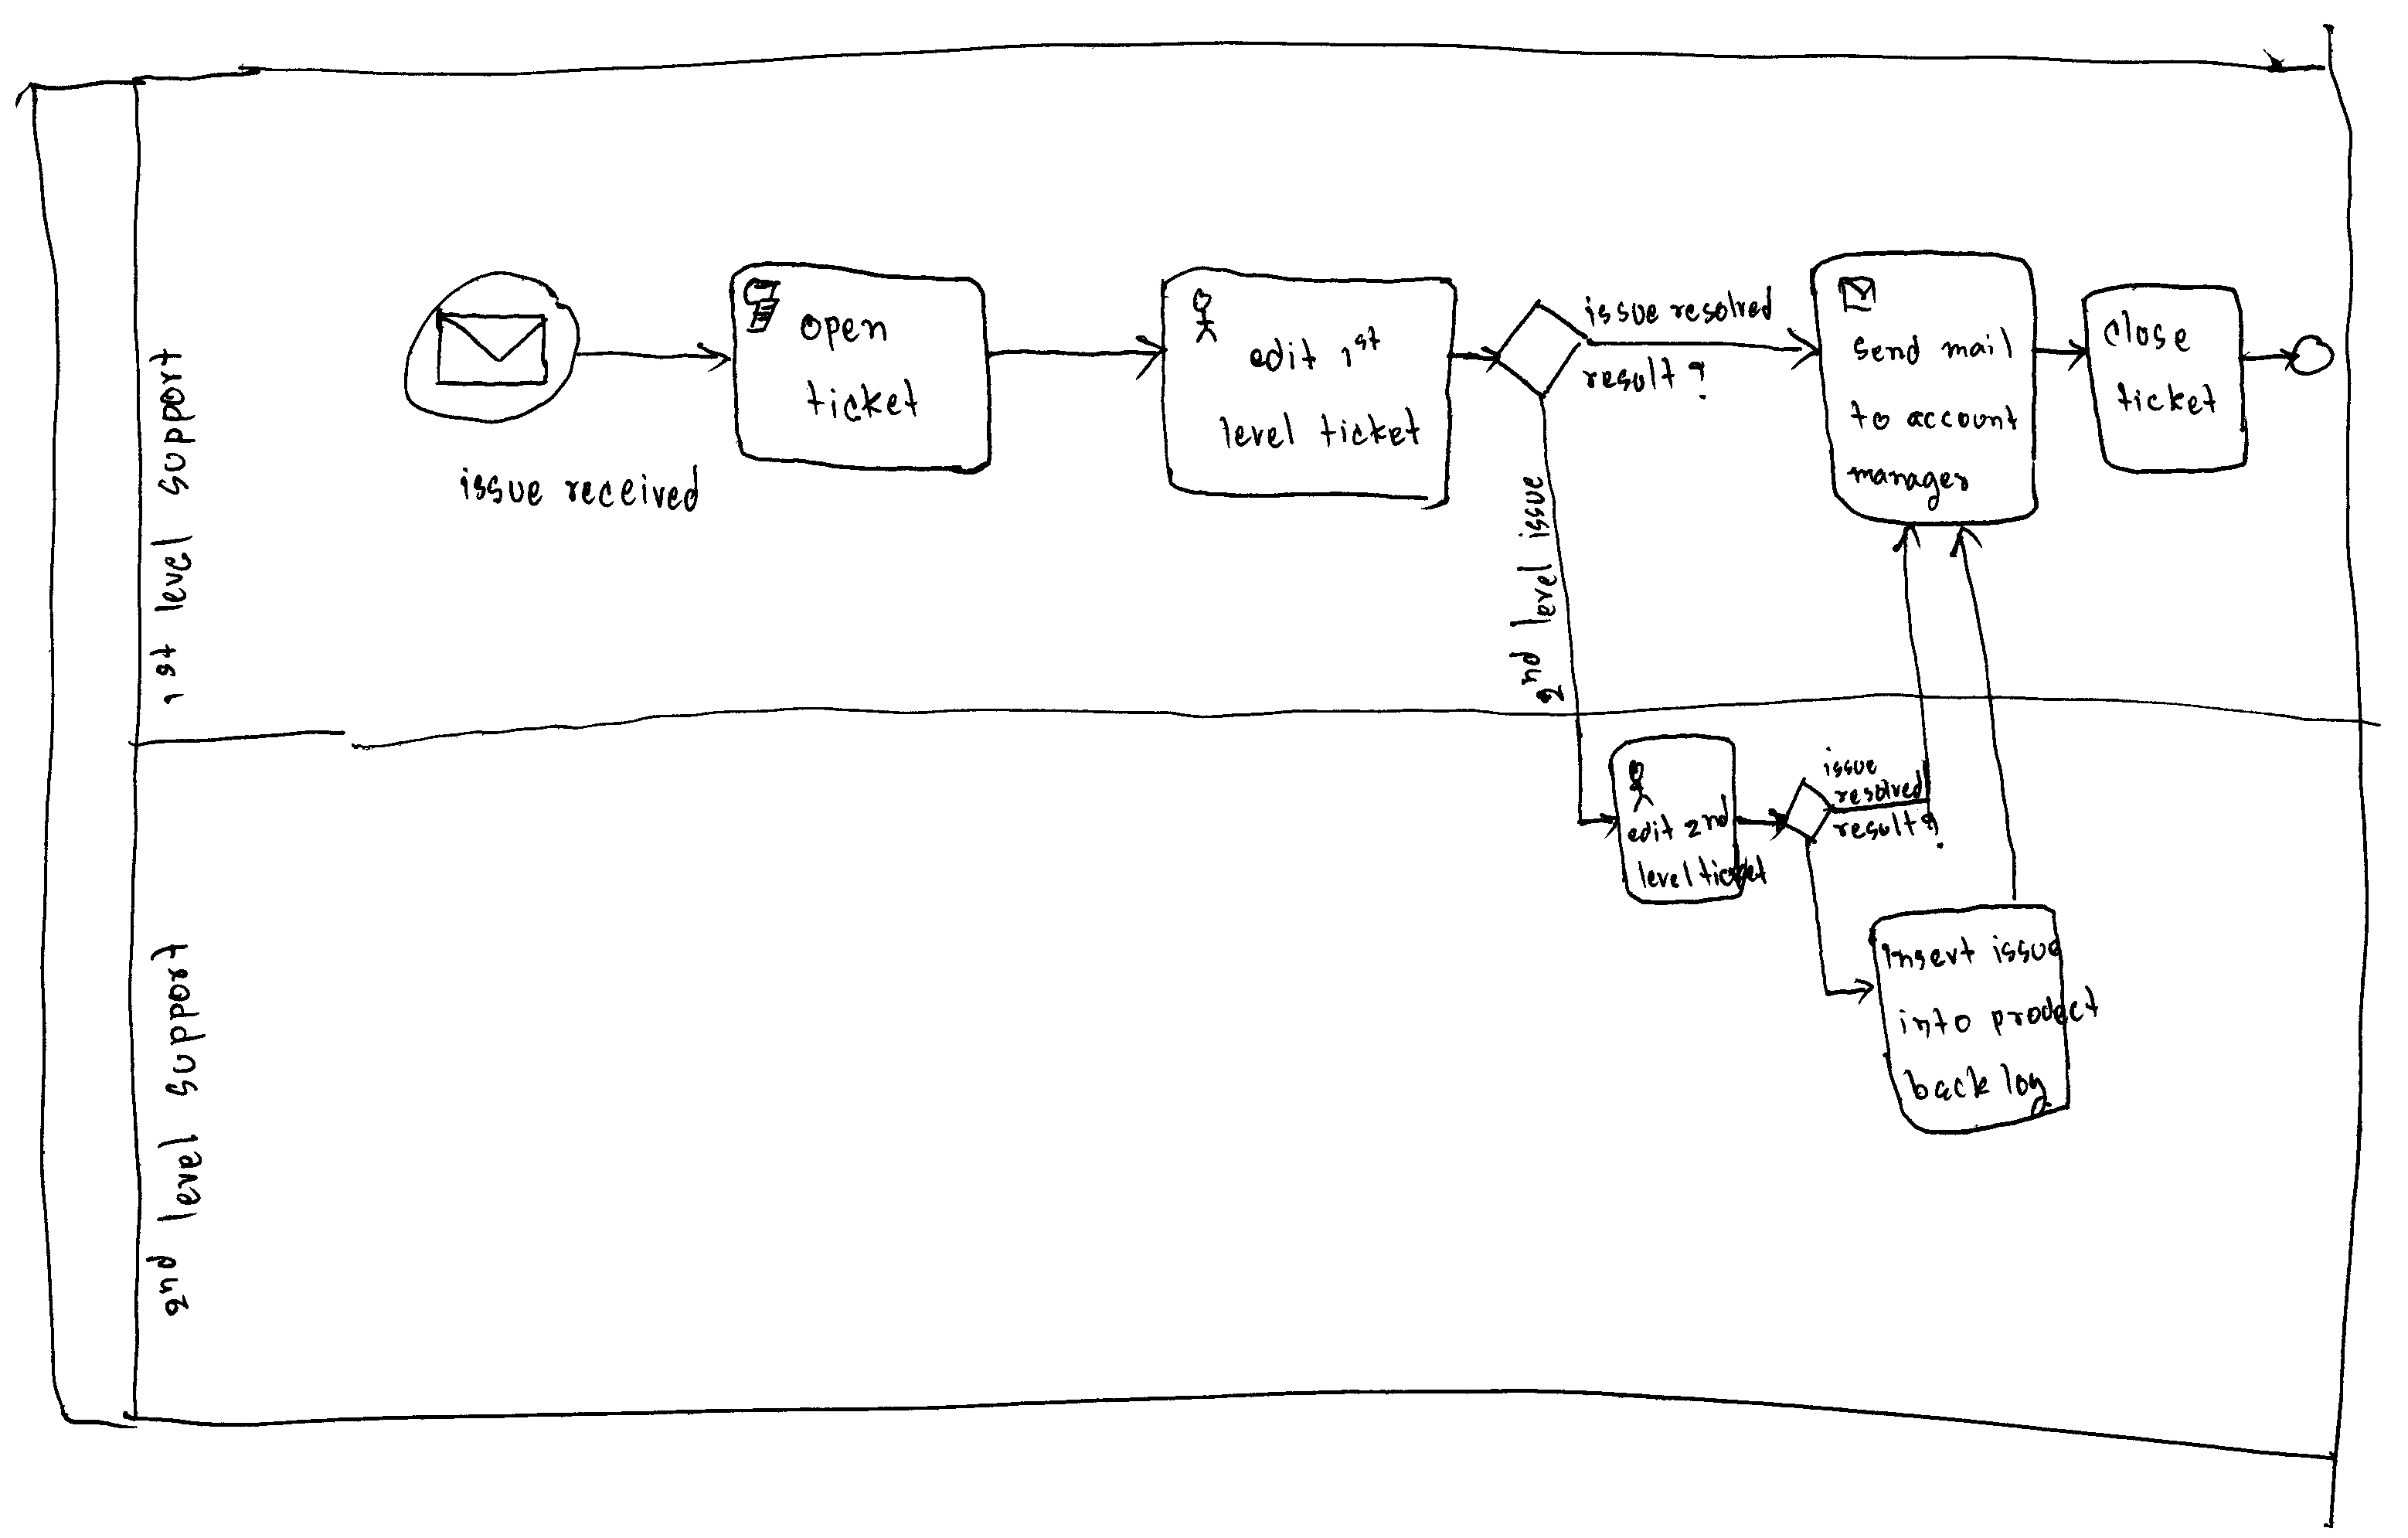 1st level support
issue received
open
ticket
edit 1st
level ticket
issue resolved
result?
2nd level issue
Send mail
to account
manager
close
ticket
2nd level support
edit 2nd
level ticket
issue
resolved
result?
Insert issue
into product
back log